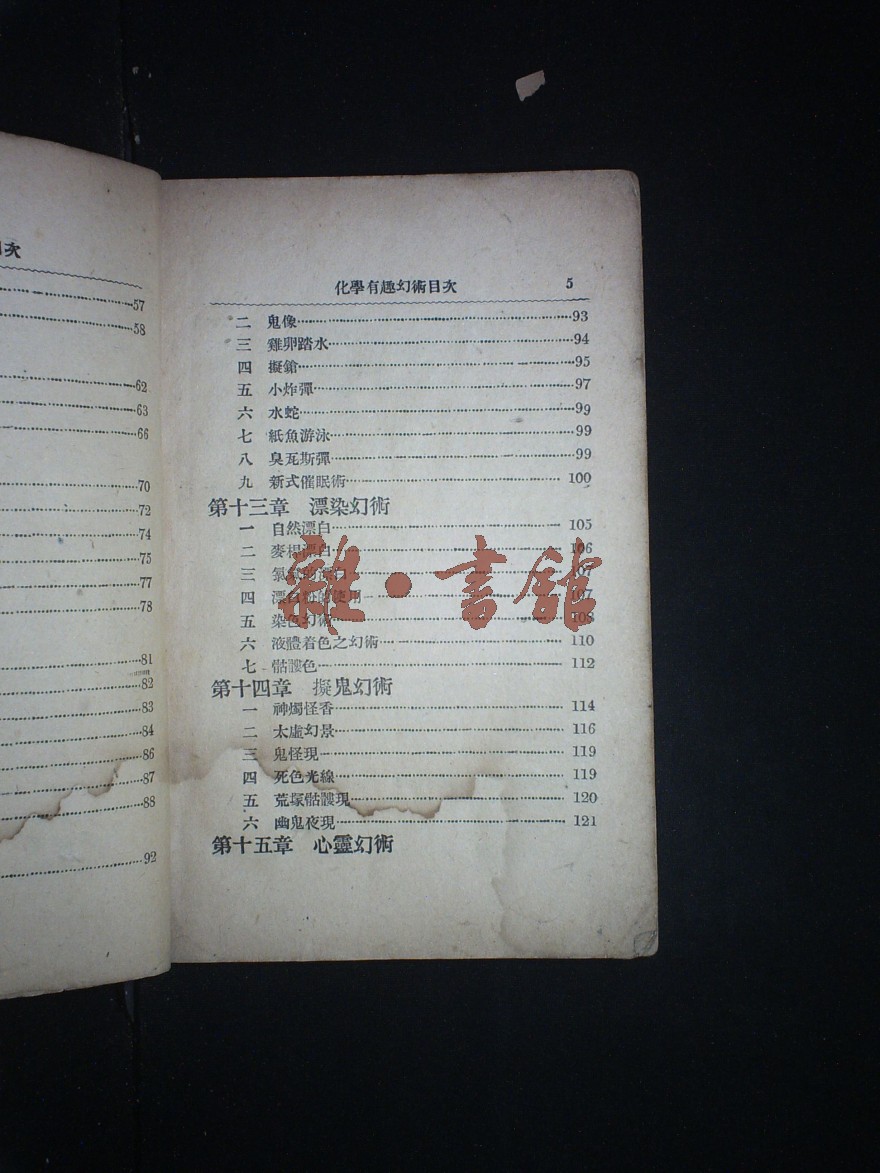 次
57
58
62
63
66
70
72
74
75
77
78
81
82
83
84
86
87
88
92
化學有趣幻術目次 5
二 鬼像 93
三 雞卵踏水 94
四 擬鎗 95
五 小炸彈 97
六 水蛇 99
七 紙魚游泳 99
八 臭瓦斯彈 99
九 新式催眠術 100
第十三章 漂染幻術
一 自然漂白 105
二 麥桿漂白 106
三 氯氣的漂白 107
四 漂白粉的使用 107
五 染色幻術 108
六 液體着色之幻術 110
七 骷髏色 112
第十四章 擬鬼幻術
一 神燭怪香 114
二 太虛幻景 116
三 鬼怪現 119
四 死色光線 119
五 荒塚骷髏現 120
六 幽鬼夜現 121
第十五章 心靈幻術
雜·書館